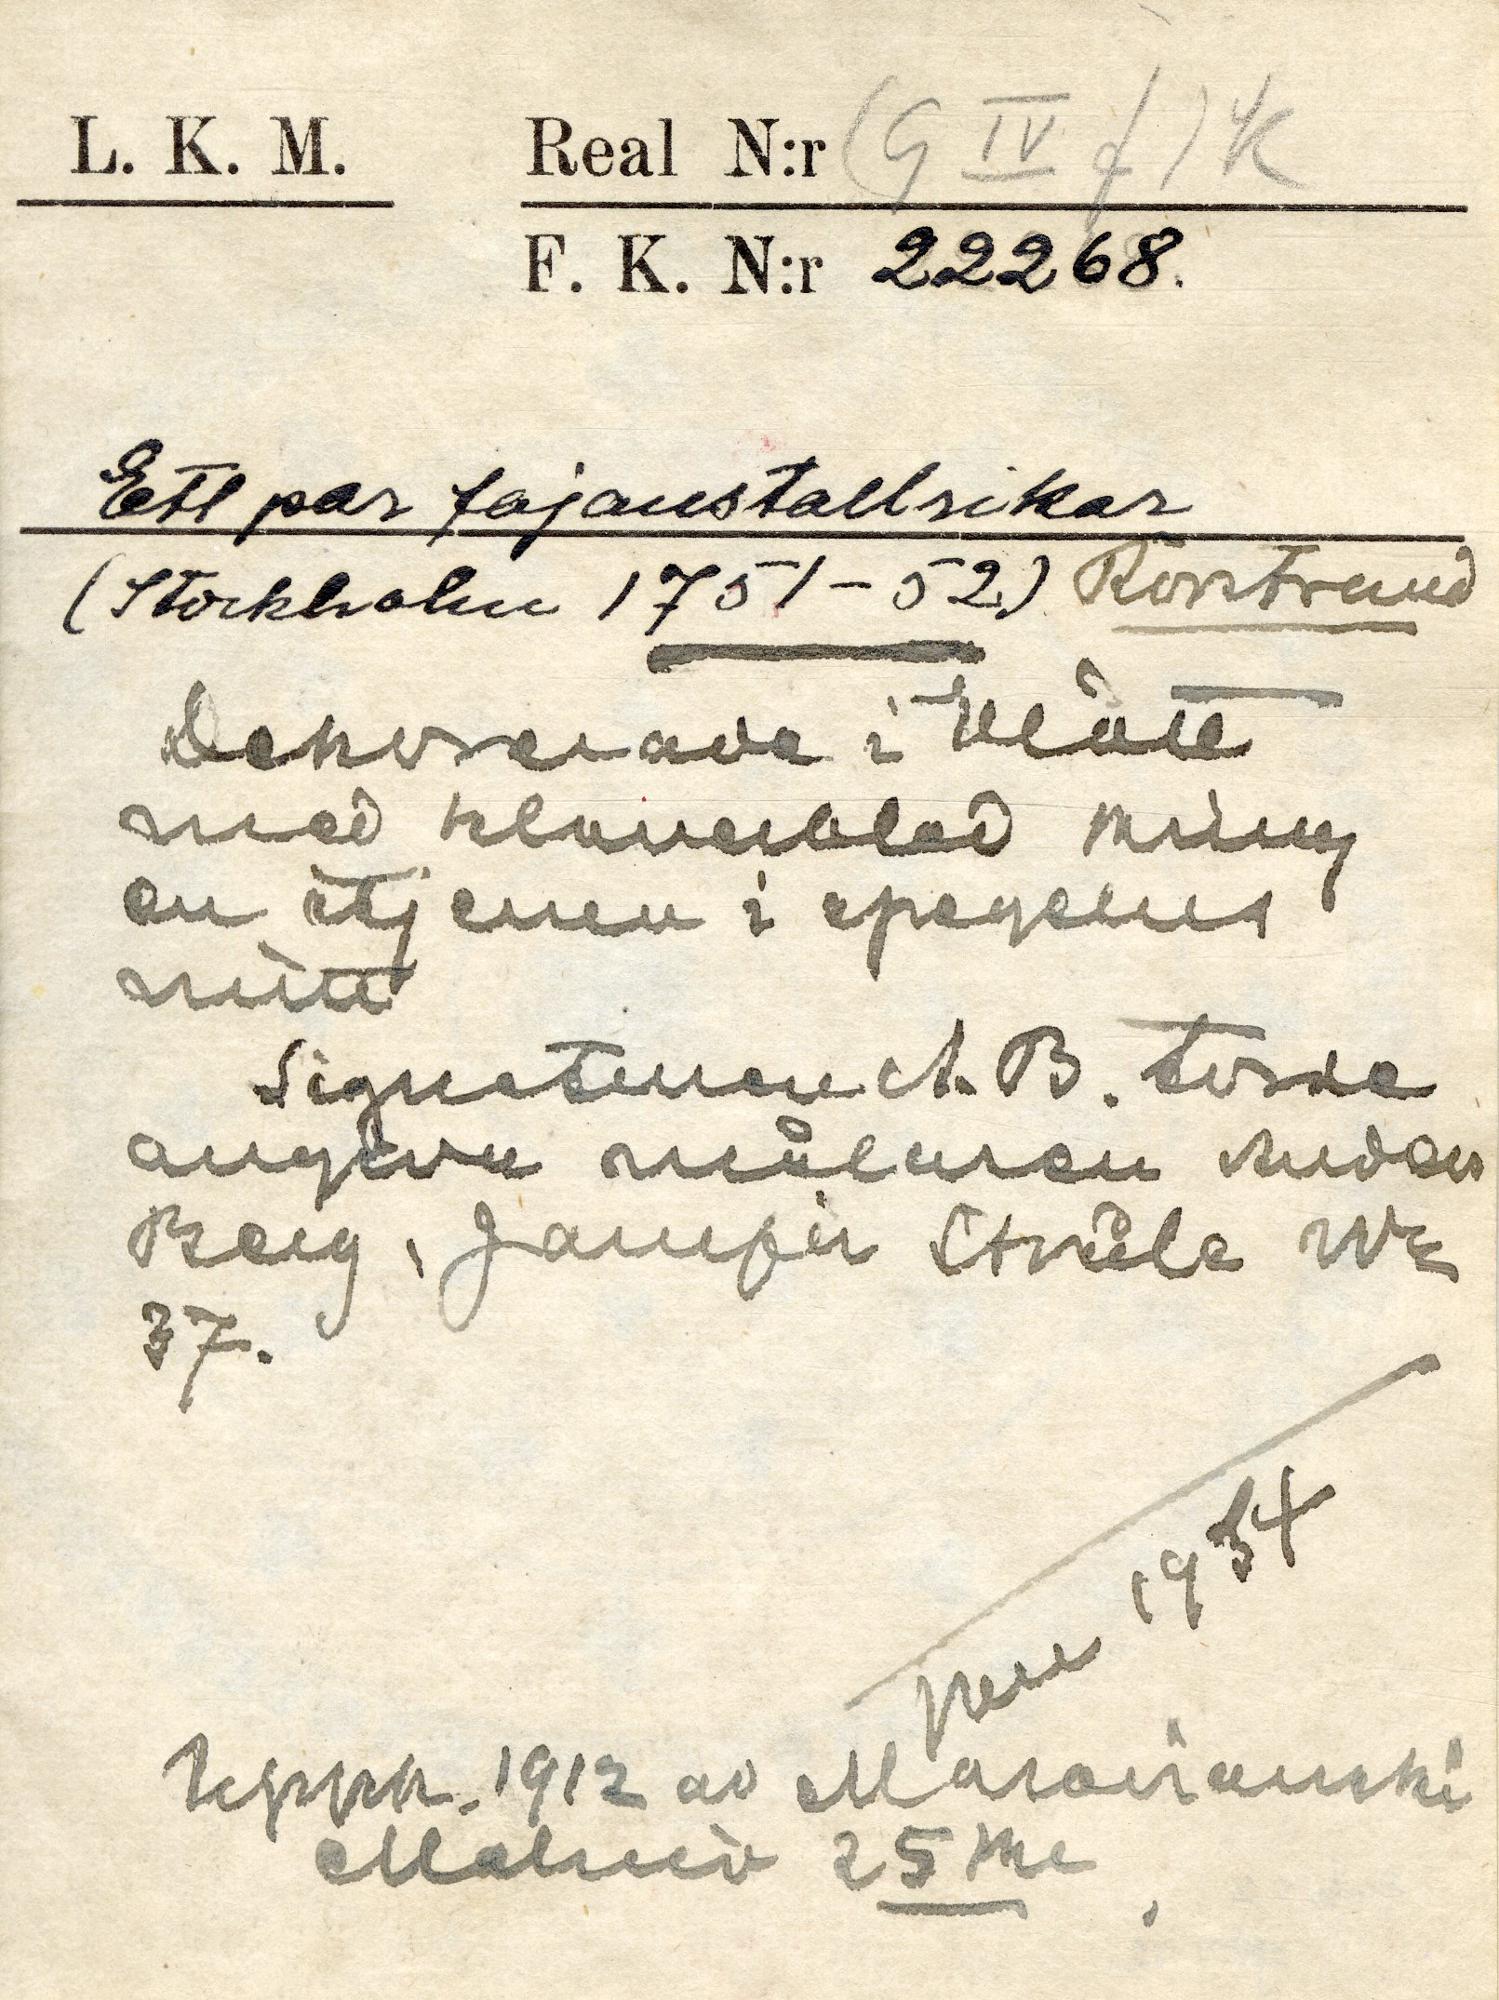 L. K. M. Real N:r (G IV f) K
F. K. N:r 22268.
Ett par fajanstallrikar
(Stockholm 1751–52) Rörstrand
Dekorerade i blått
med klöverblad kring
en stjerna i spegelns
mitt
Signaturen A. B. torde
angiva målaren Anders
Berg, Jämför Stråle
37.
1934
Uppk. 1912 av
Malmö 25 Kr